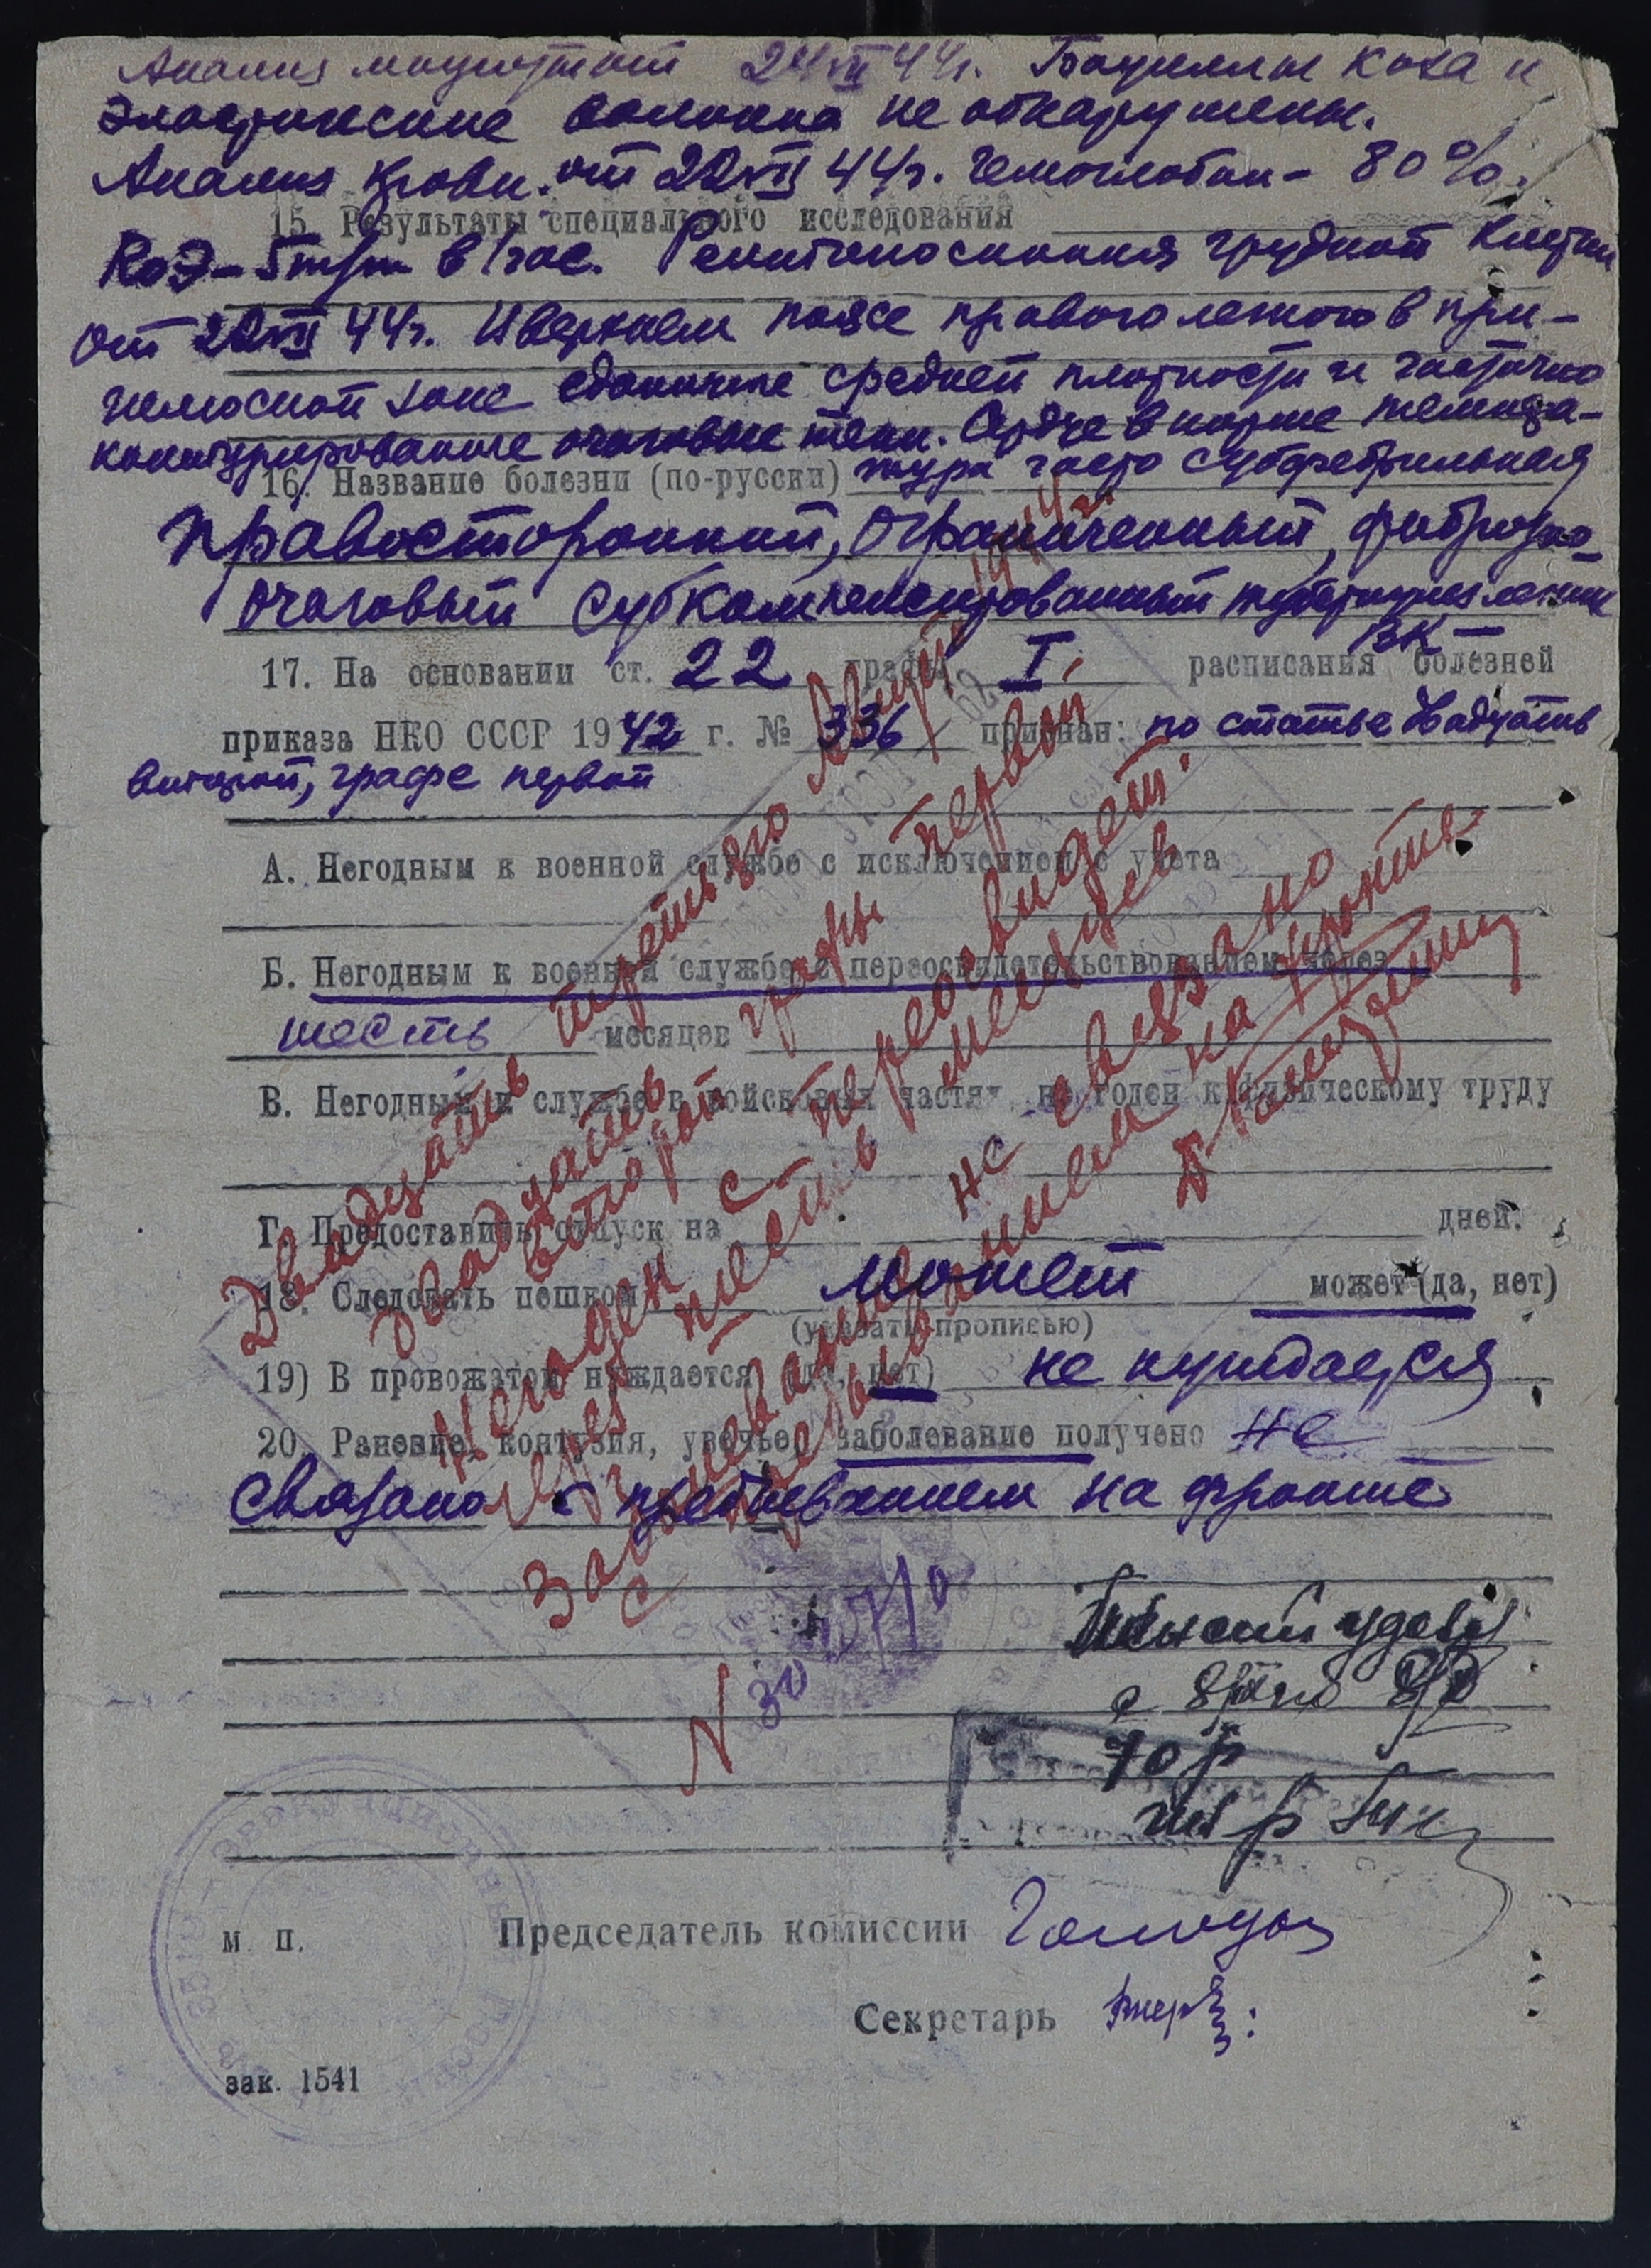 Анализ мокроты от 24 VII 44г. Бациллы Коха и
эластические волокна не обнаружены.
Анализ крови от 22 VII 44г. Гемоглобин – 80%.
15. Результаты специального исследования
РОЭ – 5 m/m в 1 час. Рентгеноскопия грудной клетки
от 22 VII 44г. И верхнем поясе правого легкого в при-
гилюсной зоне единичные средней плотности и частично
контурированные очаговые тени. Сердце в норме темпера-
16. Название болезни (по-русски) тура часто субфебрильная
Правосторонний, ограниченный, фиброзно-
очаговый субкомпенсированный туберкулез легких
ВК –
17. На основании ст. 22 графы I расписания болезней
приказа НКО СССР 1942 г. № 336 признан: по статье двадцать
второй, графе первой
А. Негодным к военной службе с исключением с учета
Б. Негодным к военной службе с переосвидетельствованием через
шесть месяцев
В. Негодным к службе в войсковых частях, но годен к физическому труду
Г. Предоставить отпуск на дней.
18. Следовать пешком может может (да, нет)
(указать прописью)
19) В провожатом нуждается (да, нет) не нуждается
20. Ранение, контузия, увечье, заболевание получено не
связано с пребыванием на фронте
Двадцать третьего августа 1944 г.
двадцать второй графы первой
Негоден с переосвидет.
через шесть месяцев
Заболевание не связано
с пребыванием на фронте
N 30
70 р
М. П. Председатель комиссии
Секретарь
зак. 1541